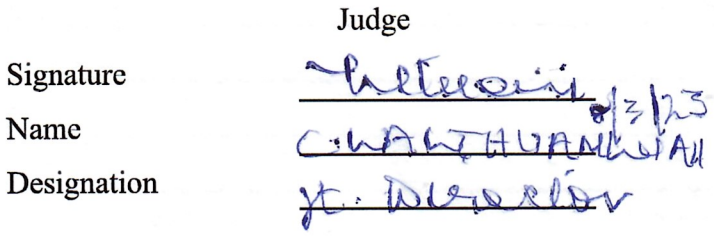 Judge
Signature
8/3/23
Name C. LALTHUAMLUIAH
Designation Jt. Director